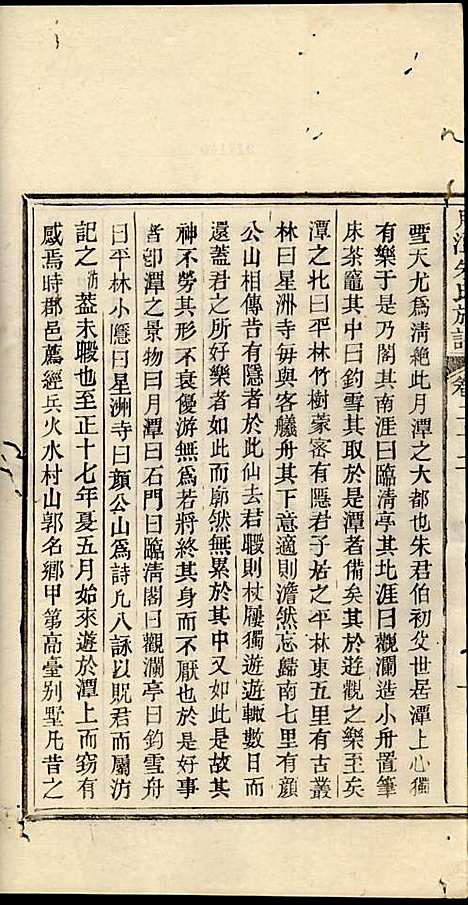 雪天尤爲淸絶此月潭之大都也朱君伯初父世居潭上心獨
有樂于是乃閣其南涯曰臨淸亭其北涯曰觀瀾造小舟置筆
床茶籠其中曰釣雪凡其取於是潭者備矣其於遊觀之樂至矣
潭之北曰平林竹樹蒙密有隱君子居之平林東五里有古叢
林曰星洲寺每與客艤舟其下意適則澹然忘歸南七里有顔
公山相傳昔有隱者於此仙去君暇則杖屨獨遊遊輙數日而
還蓋君之所好樂者如此而廓然無累於其中又如此是故其
神不勞其形不衰優游無爲若將終其身而不厭也於是好事
者卽潭之景物曰月潭曰石門曰臨淸閣曰觀瀾亭曰釣雪舟
曰平林小隱曰星洲寺曰顔公山爲詩凡八詠以貺君而屬汸
記之汸蓋未暇也至正十七年夏五月始來遊於潭上而窃有
感焉時郡邑薦經兵火水村山郭名鄉甲第高臺别墅凡昔之